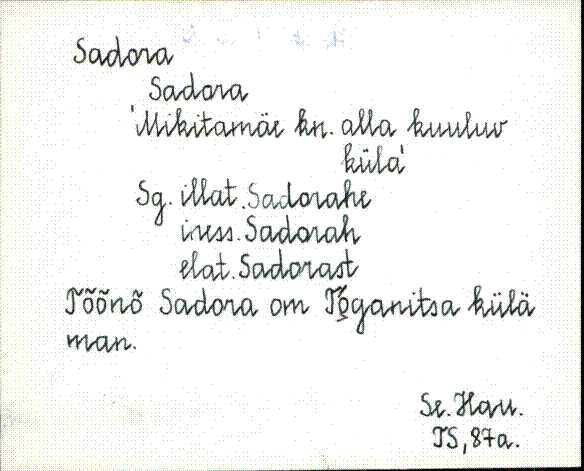 Sadora
Sadora
'Mikitamäe kn. alla kuuluv
külä'
Sg. illat. Sadorahe
iness. Sadorah
elat. Sadorast
Tõõnõ Sadora om Tõ̭ganitsa külä
man.
Se. Hau.
TS, 87a.